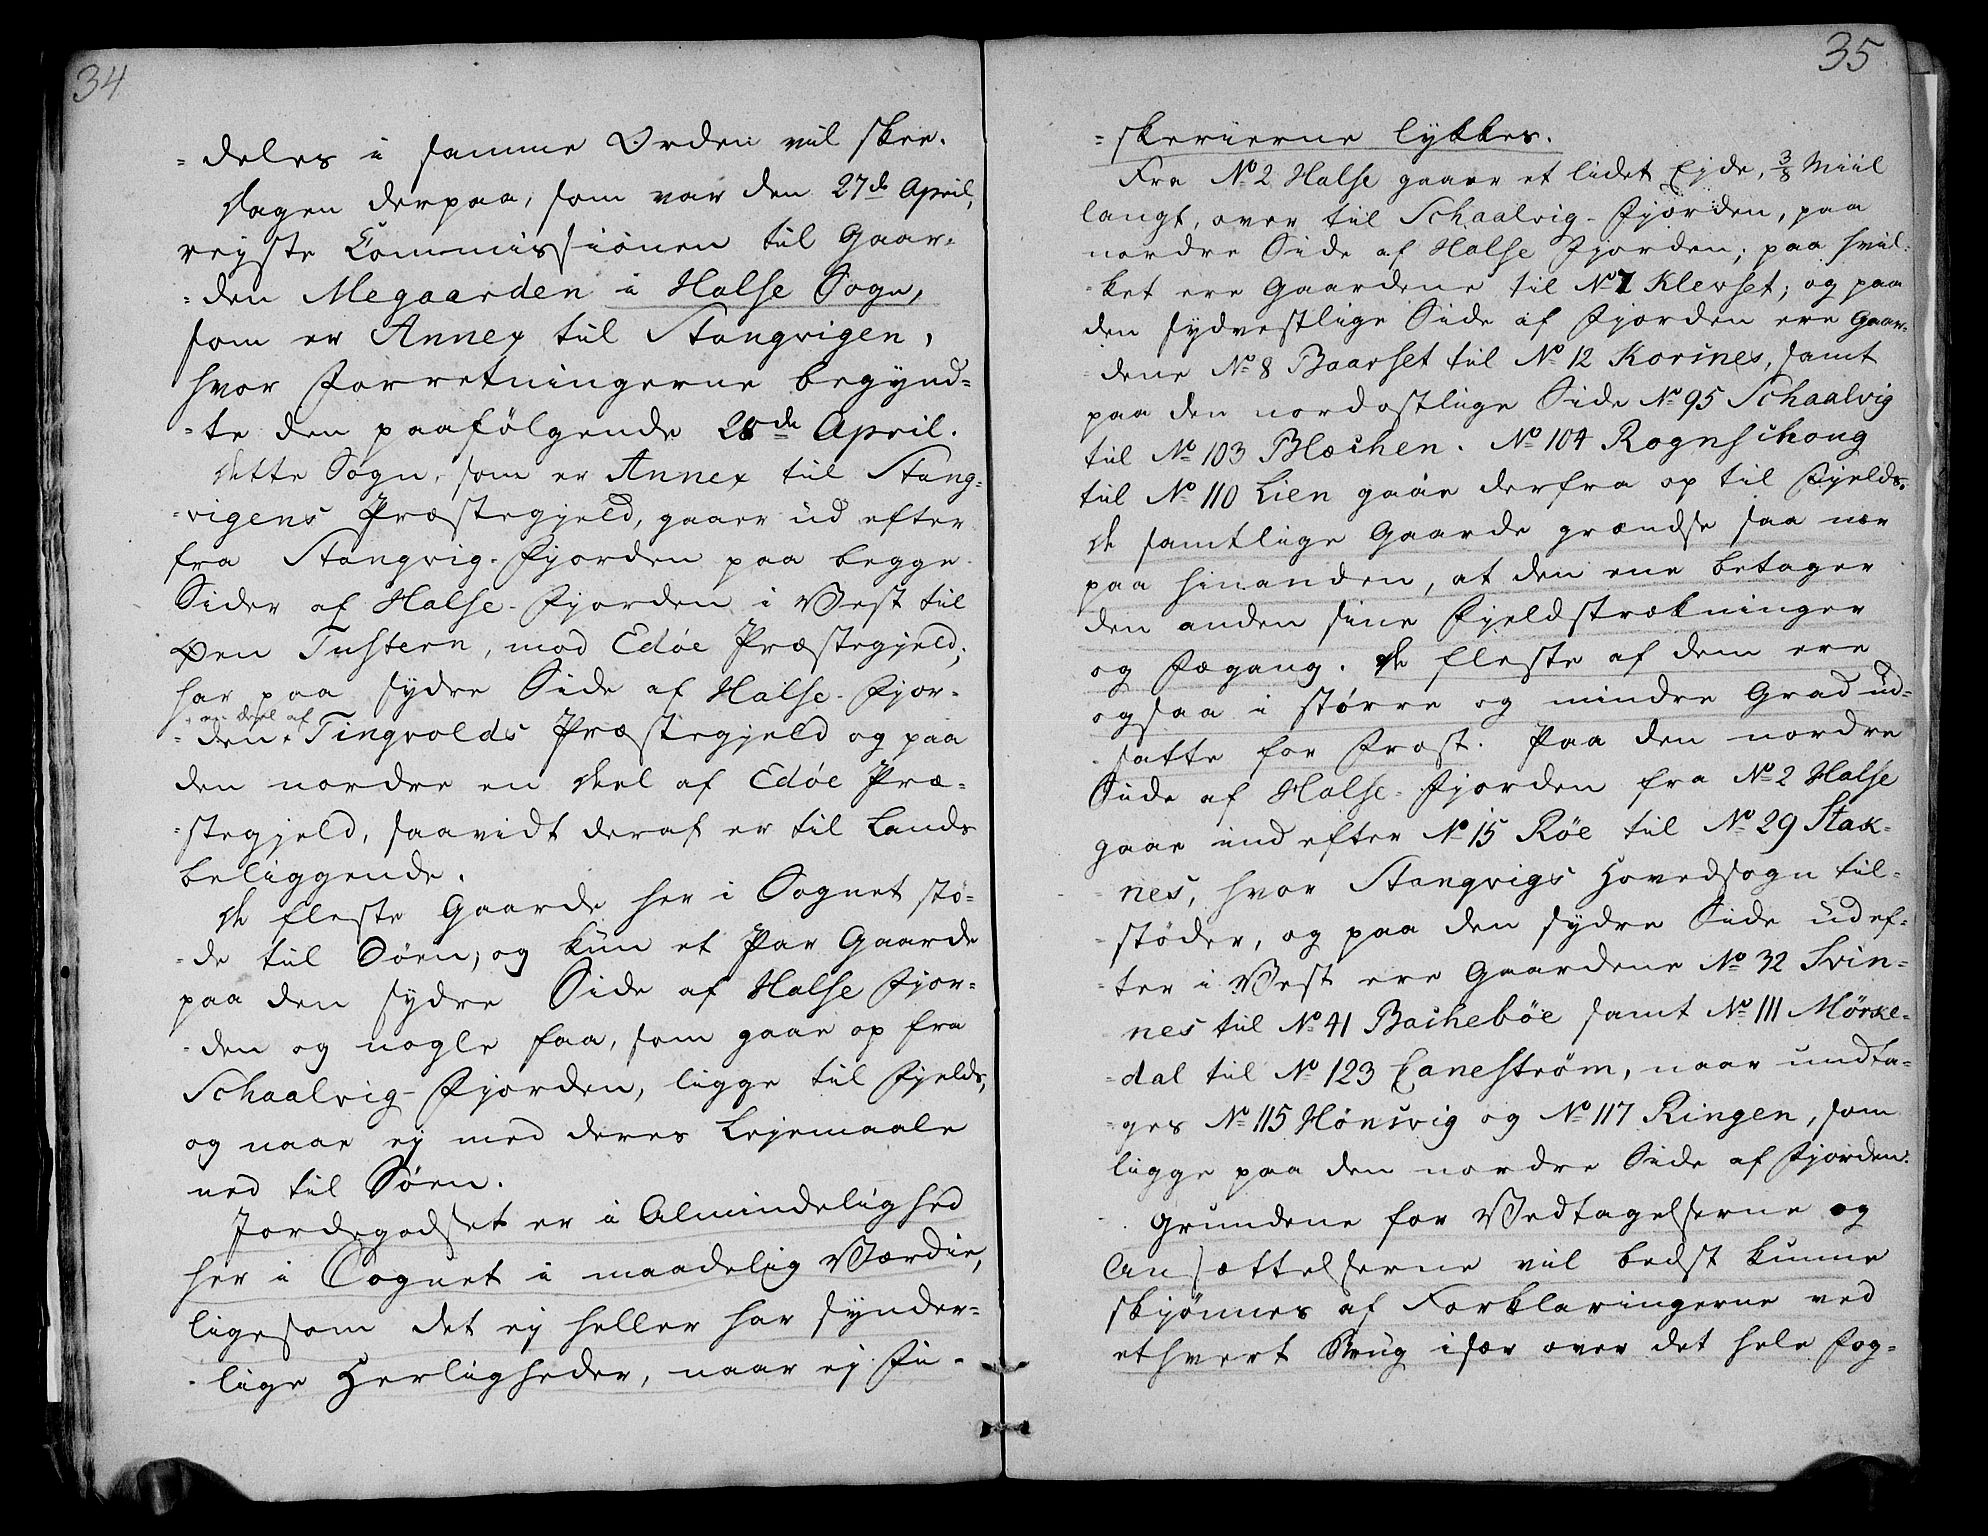 34
=deles i samme Orden vil skee.
Dagen derpaa, som var den 27de April,
rejste Commissionen til Gaar=
=den Megaarden i Halse Sogn,
som er Annex til Stangvigen,
hvor Forretningerne begynd=
=te den paafölgende 28de April.
Dette Sogn, som er Annex til Stang=
=vigens Præstegjeld, gaaer ud efter
fra Stangvig-Fjorden paa begge
Sider af Halse-Fjorden i Vest til
Øen Tustern, mod Edöe Præstegjeld;
har paa sydre Side af Halse-Fjor=
en Deel af
=den Tingvolds Præstegjeld og paa
den nordre en Deel af Edöe Præ=
=stegjeld, saavidt deraf er til Lands
beliggende.
De fleste Gaarde her i Sognet stö=
=de til Söen, og kun et Par Gaarde
paa den sydre Side af Halse Fjor=
=den og nogle faa, som gaae op fra
Schaalvig-Fjorden, ligge til Fjelds,
og naae ej med deres Lejemaale
ned til Söen.
Jordegodset er i Almindelighed
her i Sognet i maadelig Værdie,
ligesom det ej heller har synder=
=lige Herligheder, naar ej Fi=
35
=skerierne lykkes.
Fra No 2 Halse gaaer et lidet Ejde, 3/8 Miil
langt, over til Schaalvig-Fjorden, paa
nordre Side af Halse Fjorden; paa hvil=
=ket ere Gaardene til No 7 Klevset; og paa
den sydvestlige Side af Fjorden ere Gaar=
=dene No 8 Baarset til No 12 Korsnes, samt
paa den nordostlige Side No 95 Schaalvig
til No 103 Blæchen. No 104 Rognschoug
til No 110 Lien gaae derfra op til Fjelds.
De samtlige Gaarde grændse saa nær
paa hinanden, at den ene betager
den anden sine Fjeldstrækninger
og Fægang. De fleste af dem ere
ogsaa i större og mindre Grad ud=
=satte for Frost. Paa den nordre
Side af Halse-Fjorden fra No 2 Halse
gaae ind efter No 15 Röe til No 29 Stak=
=nes, hvor Stangvigs Hovedsogn til=
=stöder, og paa den sydre Side ud ef=
=ter i Vest ere Gaardene No 32 Svin=
nes til No 41 Bacheböe samt No 111 Mörke=
=dal til No 123 Laneström, naar undta=
=ges No 115 Hönsvig og No 117 Ringen, som
ligge paa den nordre Side af Fjorden.
Grundene for Vedtagelserne og
Ansættelserne vil bedst kunne
skjönnes af Forklaringerne ved
ethvert Brug især over det hele Fog=